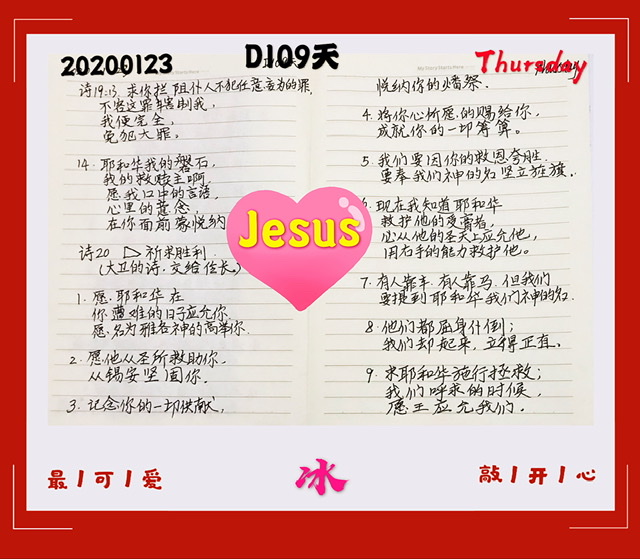 20200123
D109天
Thursday
诗19:13. 求你拦阻仆人不犯任意妄为的罪.
不容这罪辖制我,
我便完全,
免犯大罪,
14. 耶和华我的磐石,
我的救赎主啊,
愿我口中的言语,
心里的意念,
在你面前蒙悦纳
诗20 ▷ 祈求胜利.
(大卫的诗.交给伶长.)
1. 愿.耶和华在
你遭难的日子应允你.
愿.名为雅各神的高举你.
2. 愿他从圣所救助你,
从锡安坚固你.
3. 记念你的一切供献,
Jesus
悦纳你的燔祭.
4. 将你心所愿.的赐给你,
成就你的一切筹算.
5. 我们要因你的救恩夸胜.
要奉我们神的名竖立旌旗.
现在我知道耶和华
救护他的受膏者,
必从他的圣天上应允他,
用右手的能力救护他.
7. 有人靠车.有人靠马.但我们
要提到耶和华我们神的名.
8. 他们都屈身仆倒;
我们却起来,立得正直.
9. 求耶和华施行拯救;
我们呼求的时候,
愿王应允我们.
最 / 可 / 爱
冰
敲 / 开 / 心